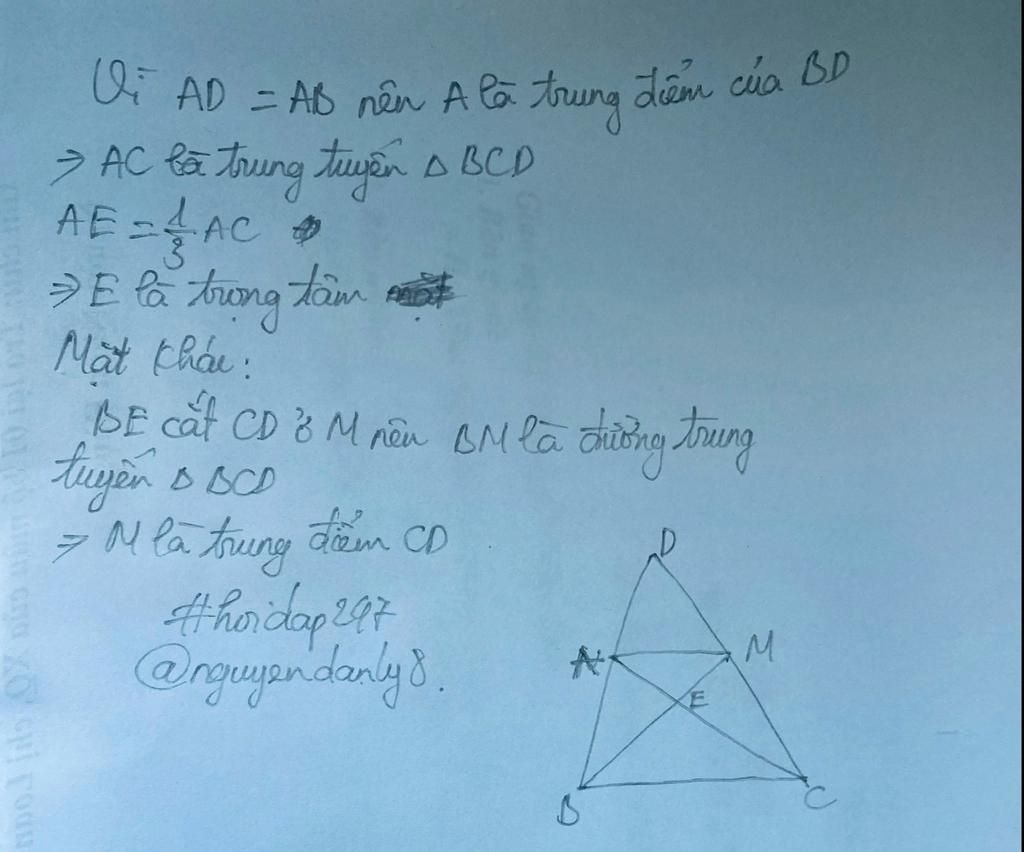 Vì AD = AB nên A là trung điểm của BD
⇒ AC là trung tuyến Δ BCD
AE = 1/3 AC
⇒ E là trọng tâm
Mặt khác:
BE cắt CD ở M nên BM là đường trung
tuyến Δ BCD
⇒ M là trung điểm CD
#hoidap247
@nguyendanly8.
D
A M
E
B C